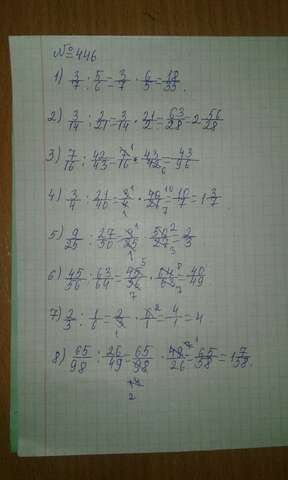 № 446
1) 3/7 : 5/6 = 3/7 · 6/5 = 18/35.
2) 3/14 : 2/21 = 3/14 · 21/2 = 63/28 = 2 56/28
3) 7/16 : 42/43 = 7/16 · 43/42 = 43/96
4) 3/4 : 21/40 = 3/4 · 40/21 = 10/7 = 1 3/7
5) 9/25 : 27/50 = 9/25 · 50/27 = 2/3
6) 45/56 : 63/64 = 45/56 · 64/63 = 40/49
7) 2/3 : 1/6 = 2/3 · 6/1 = 4/1 = 4
8) 65/98 : 26/49 = 65/98 · 49/26 =